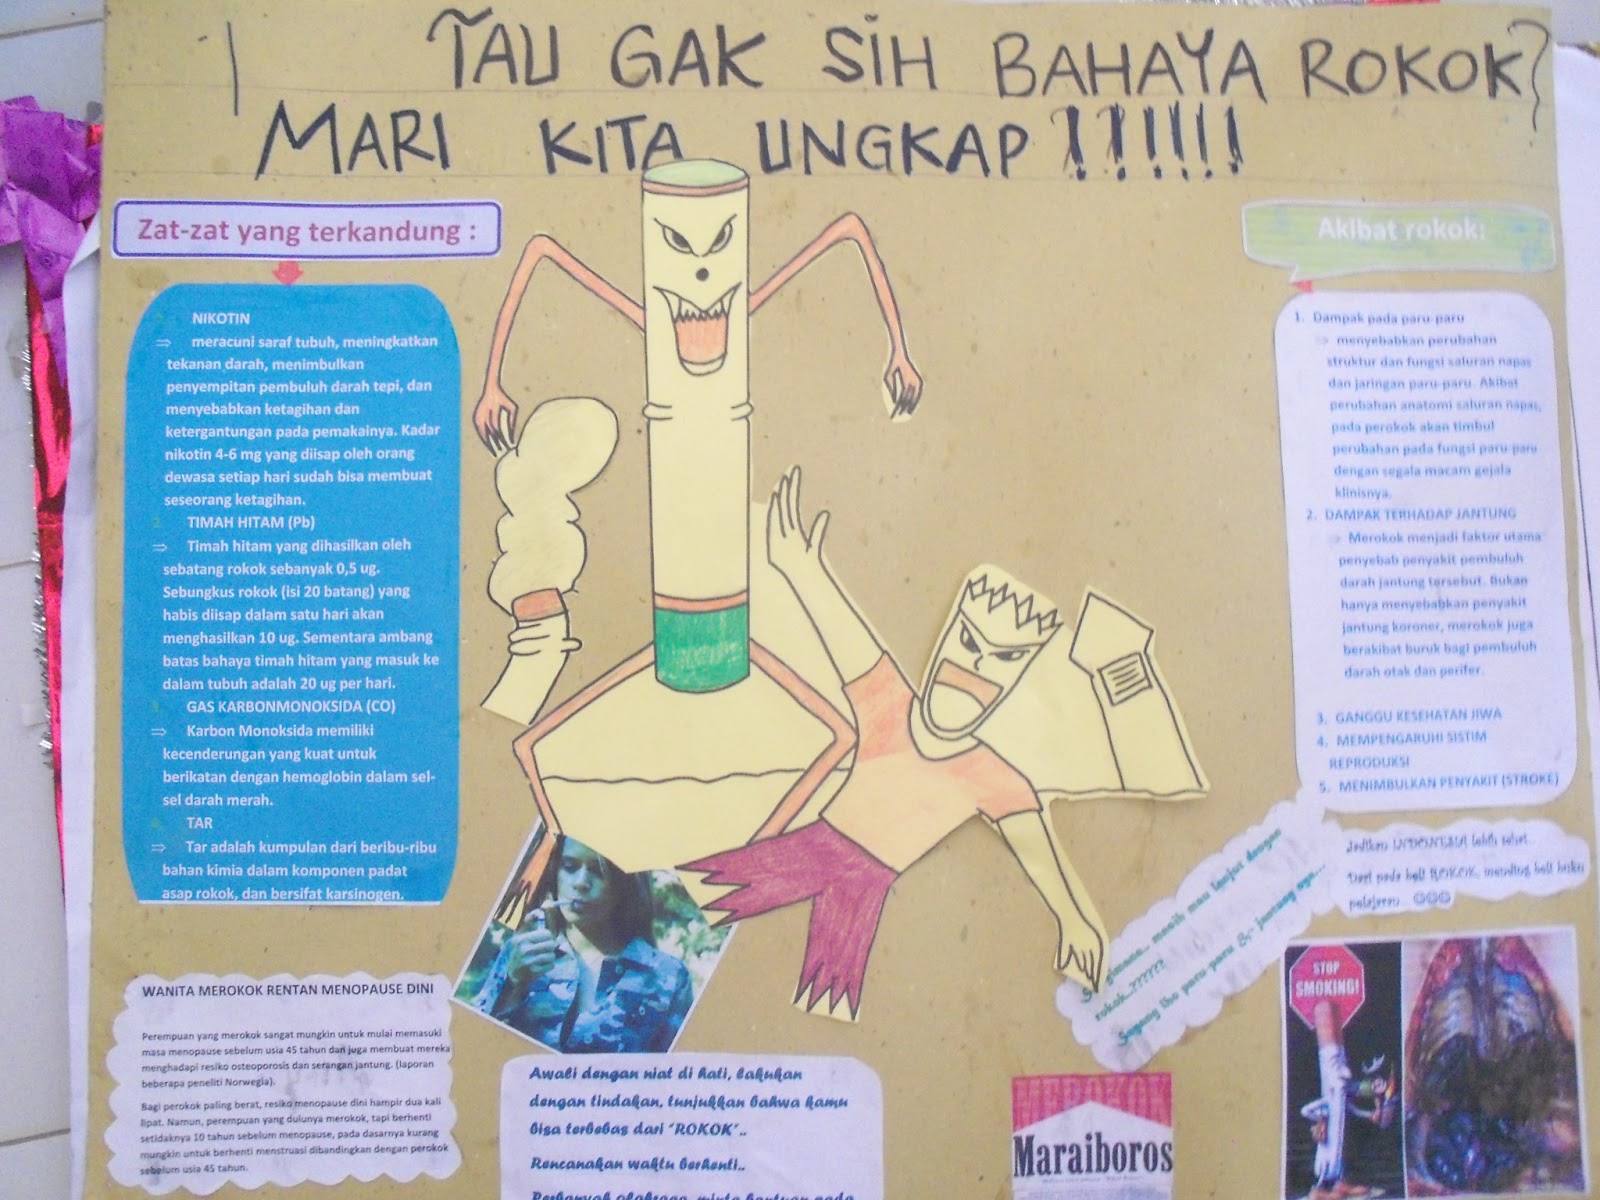 TAU GAK SIH BAHAYA ROKOK?
MARI KITA UNGKAP !!!!!!!
Zat-zat yang terkandung :
NIKOTIN
⇒ meracuni saraf tubuh, meningkatkan
tekanan darah, menimbulkan
penyempitan pembuluh darah tepi, dan
menyebabkan ketagihan dan
ketergantungan pada pemakainya. Kadar
nikotin 4-6 mg yang diisap oleh orang
dewasa setiap hari sudah bisa membuat
seseorang ketagihan.
TIMAH HITAM (Pb)
⇒ Timah hitam yang dihasilkan oleh
sebatang rokok sebanyak 0,5 ug.
Sebungkus rokok (isi 20 batang) yang
habis diisap dalam satu hari akan
menghasilkan 10 ug. Sementara ambang
batas bahaya timah hitam yang masuk ke
dalam tubuh adalah 20 ug per hari.
GAS KARBONMONOKSIDA (CO)
⇒ Karbon Monoksida memiliki
kecenderungan yang kuat untuk
berikatan dengan hemoglobin dalam sel-
sel darah merah.
TAR
⇒ Tar adalah kumpulan dari beribu-ribu
bahan kimia dalam komponen padat
asap rokok, dan bersifat karsinogen.
WANITA MEROKOK RENTAN MENOPAUSE DINI
Perempuan yang merokok sangat mungkin untuk mulai memasuki
masa menopause sebelum usia 45 tahun dan juga membuat mereka
menghadapi resiko osteoporosis dan serangan jantung. (laporan
beberapa peneliti Norwegia).
Bagi perokok paling berat, resiko menopause dini hampir dua kali
lipat. Namun, perempuan yang dulunya merokok, tapi berhenti
setidaknya 10 tahun sebelum menopause, pada dasarnya kurang
mungkin untuk berhenti menstruasi dibandingkan dengan perokok
sebelum usia 45 tahun.
Awali dengan niat di hati, lakukan
dengan tindakan, tunjukkan bahwa kamu
bisa terbebas dari "ROKOK"..
Rencanakan waktu berhenti..
Perbanyak olahraga, minta bantuan pada
Akibat rokok:
1. Dampak pada paru-paru
⇒ menyebabkan perubahan
struktur dan fungsi saluran napas
dan jaringan paru-paru. Akibat
perubahan anatomi saluran napas,
pada perokok akan timbul
perubahan pada fungsi paru-paru
dengan segala macam gejala
klinisnya.
2. DAMPAK TERHADAP JANTUNG
⇒ Merokok menjadi faktor utama
penyebab penyakit pembuluh
darah jantung tersebut. Bukan
hanya menyebabkan penyakit
jantung koroner, merokok juga
berakibat buruk bagi pembuluh
darah otak dan perifer.
3. GANGGU KESEHATAN JIWA
4. MEMPENGARUHI SISTIM
REPRODUKSI
5. MENIMBULKAN PENYAKIT (STROKE)
Jadikan INDONESIA lebih sehat
Dari pada beli ROKOK, mending beli buku
pelajaran
gimana.. masih mau lanjut dengan
rokok..??????
Sayang lho paru paru & jantung nya...
STOP
SMOKING!
MEROKOK
Maraiboros